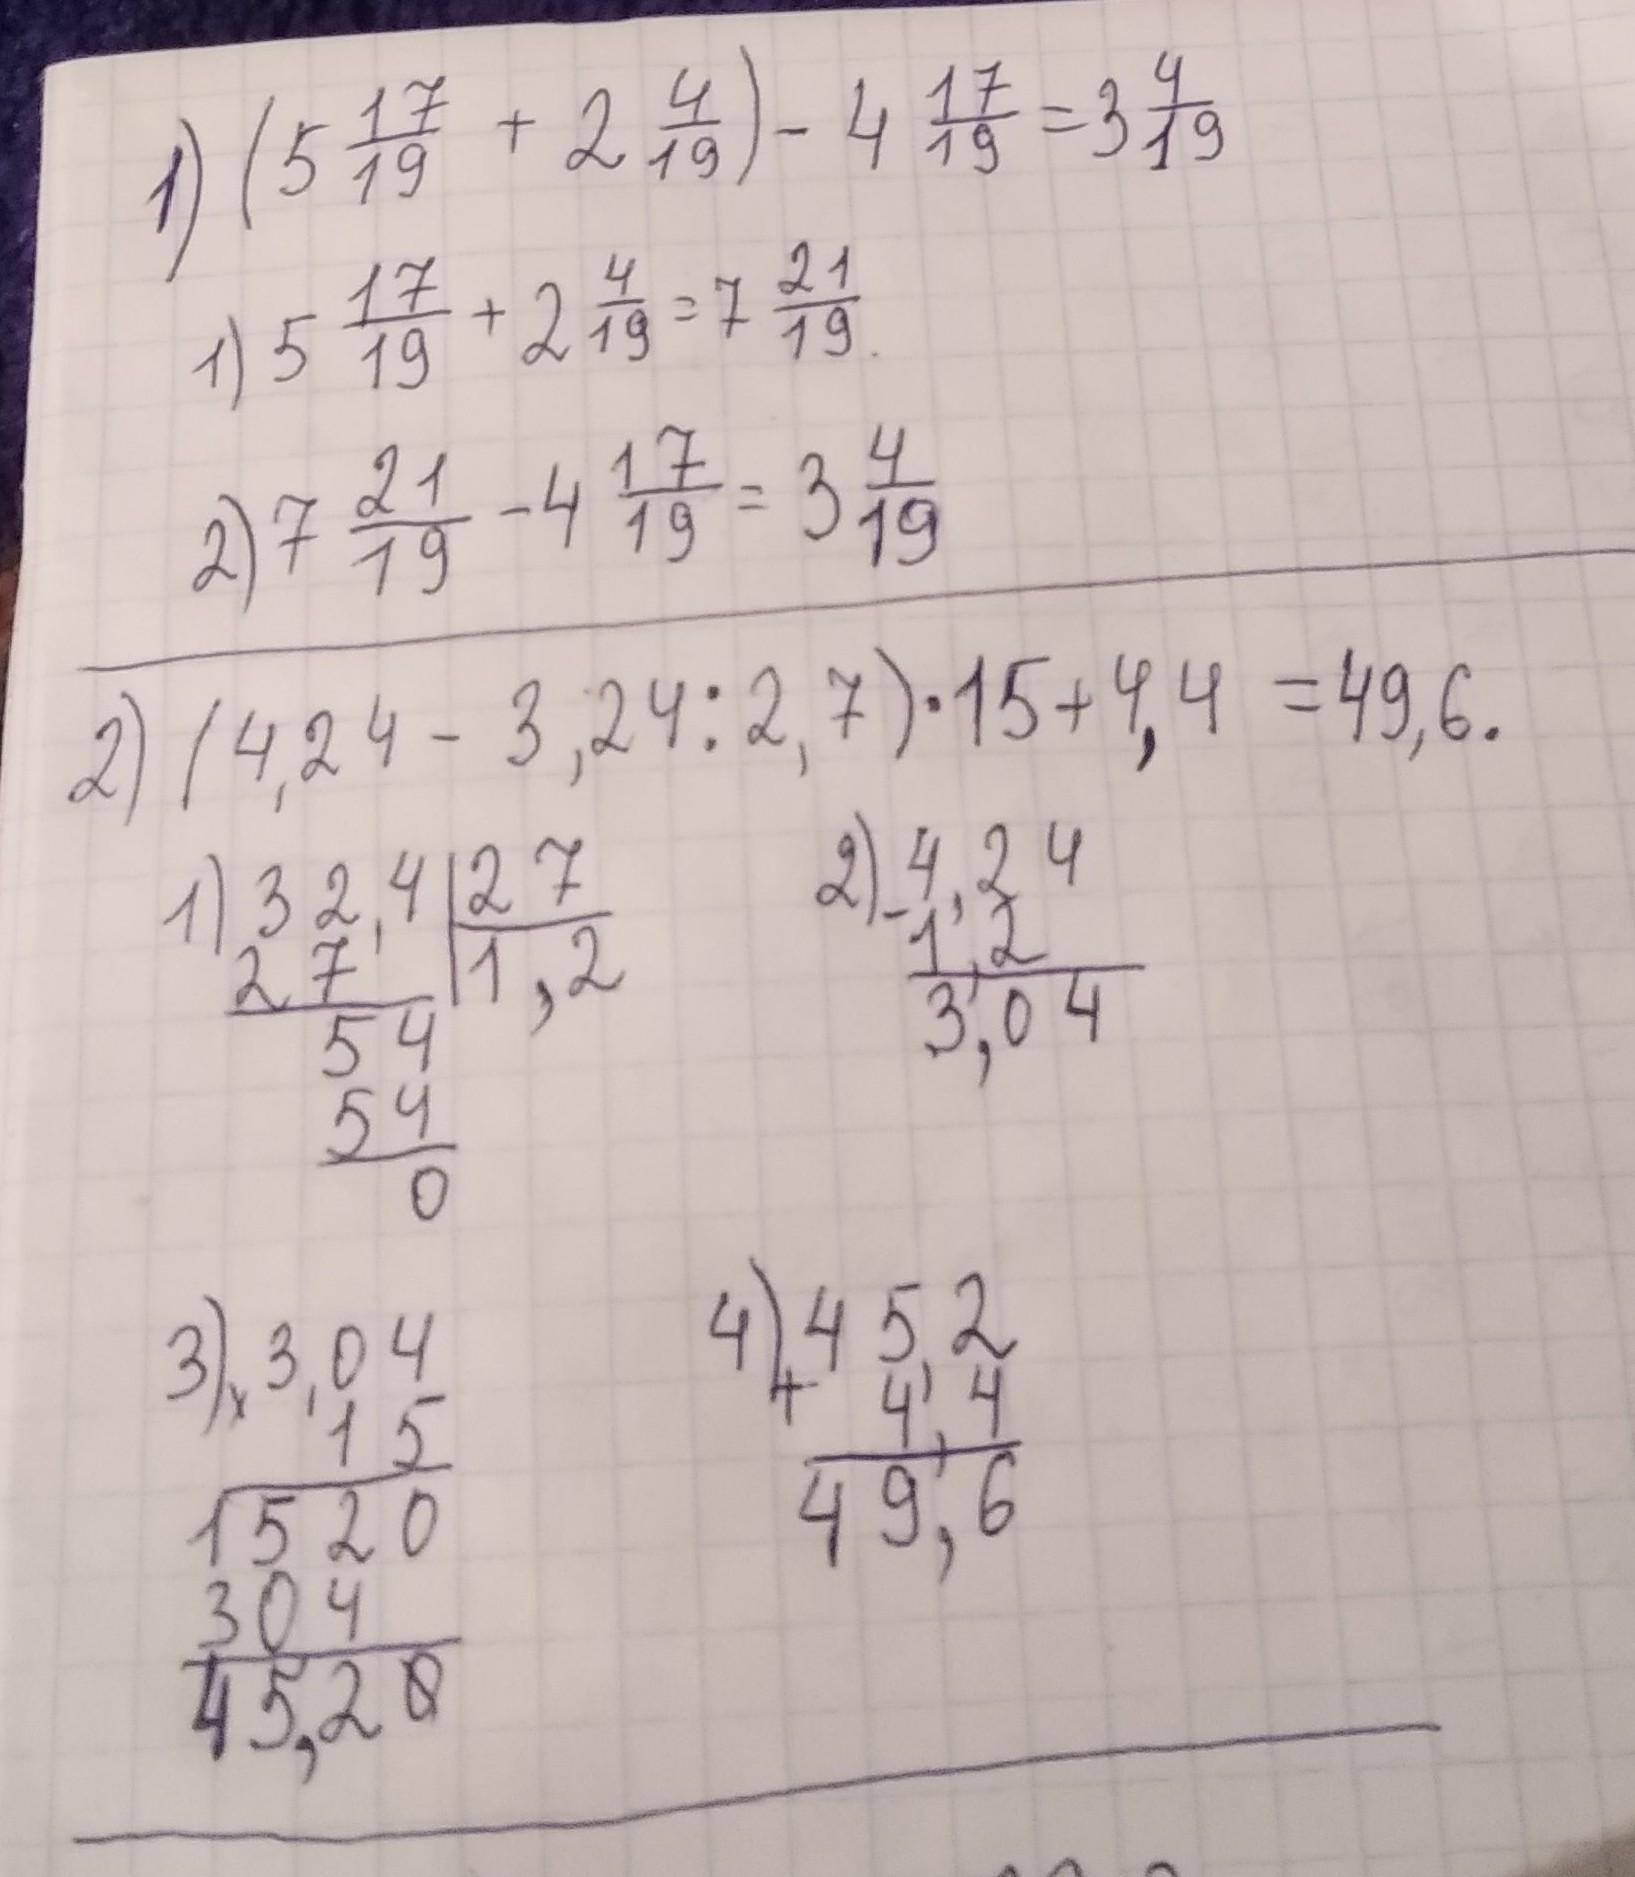 1) (5 17/19 + 2 4/19) - 4 17/19 = 3 4/19
1) 5 17/19 + 2 4/19 = 7 21/19.
2) 7 21/19 - 4 17/19 = 3 4/19
2) (4,24 - 3,24 : 2,7) · 15 + 4,4 = 49,6.
1) 32,4 | 27
27 | 1,2
54
54
0
2) - 4,24
1,2
3,04
3) x 3,04
15
1520
304
45,20
4) + 45,2
4,4
49,6